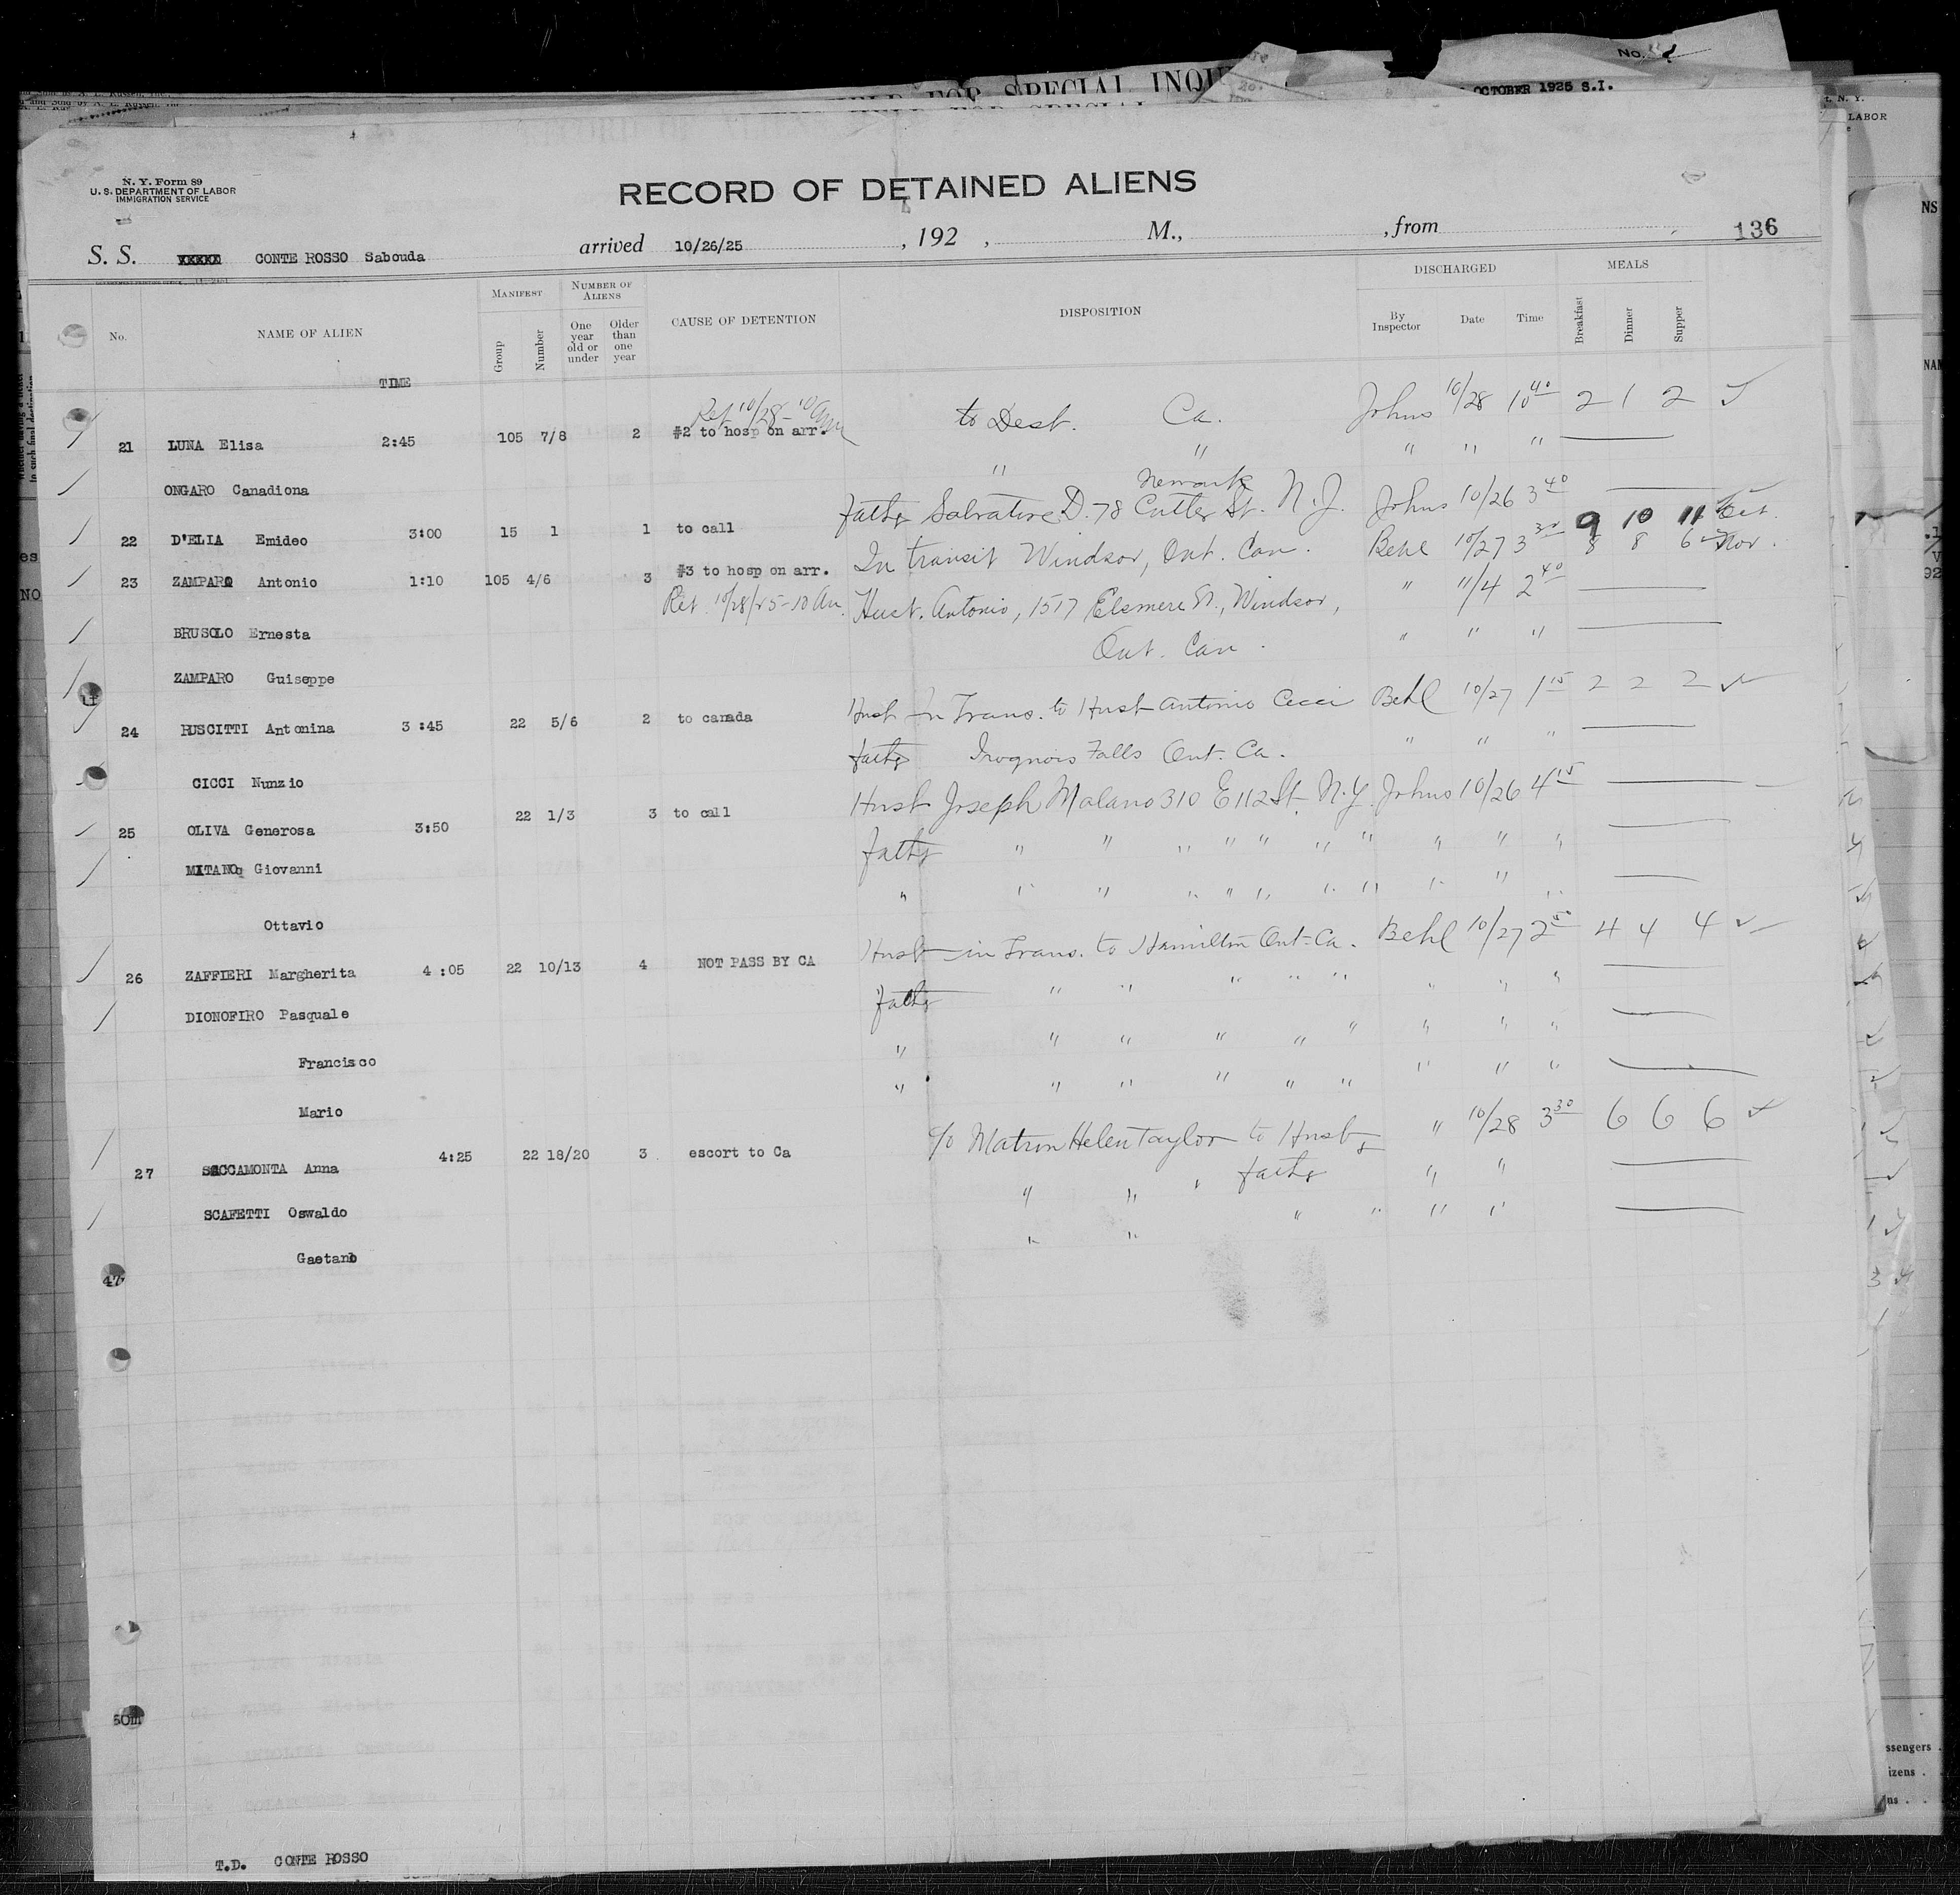 No.
FOR SPECIAL INQUI
OCTOBER 1925 S.I.
LABOR
N. Y. Form 89
U. S. DEPARTMENT OF LABOR
IMMIGRATION SERVICE
RECORD OF DETAINED ALIENS
S. S. XXXXX CONTE ROSSO Sabouda arrived 10/26/25 , 192 , M., , from 136
No. NAME OF ALIEN MANIFEST Group Number NUMBER OF ALIENS One year old or under Older than one year CAUSE OF DETENTION DISPOSITION DISCHARGED By Inspector Date Time MEALS Breakfast Dinner Supper
TIME
Ret 10/28 - 10 Am
21 LUNA Elisa 2:45 105 7/8 2 #2 to hosp on arr. to Dest. Ca. Johns 10/28 10 40 2 1 2
ONGARO Canadiona " " " " "
Newark
22 D'ELIA Emideo 3:00 15 1 1 to call father Salvatore D. 78 Cutler St. N. J. Johns 10/26 3 40
9 10 11 Oct.
23 ZAMPARO Antonio 1:10 105 4/6 3 #3 to hosp on arr. In transit Windsor, Ont. Can. Behl 10/27 3 30 8 8 6 Nov.
Ret. 10/28/25 - 10 Am.
BRUSOLO Ernesta Hust. Antonio, 1517 Elsmere St., Windsor, " 11/4 2 40
ZAMPARO Guiseppe Ont. Can. " " "
24 RUSCITTI Antonina 3:45 22 5/6 2 to canada Hust in Trans. to Hust Antonio Cicci Behl 10/27 1 15 2 2 2
CICCI Nunzio father Iroquois Falls Ont. Ca. " " "
25 OLIVA Generosa 3:50 22 1/3 3 to call Hust Joseph Molano 310 E 112 St. N.Y. Johns 10/26 4 15
MITANO Giovanni father " " " " " " " " " "
Ottavio " " " " " " " " " " "
26 ZAFFIERI Margherita 4:05 22 10/13 4 NOT PASS BY CA Hust in Trans. to Hamilton Ont. Ca. Behl 10/27 2 40 4 4 4
DIONOFIRO Pasquale father " " " " " " " "
Francisco " " " " " " " " "
Mario " " " " " " " " "
27 SACCAMONTA Anna 4:25 22 18/20 3 escort to Ca c/o Matron Helen Taylor to Hust & " 10/28 3 30 6 6 6
SCAFETTI Oswaldo " " " father " "
Gaetano " " " " " "
47
50m
T.D. CONTE ROSSO